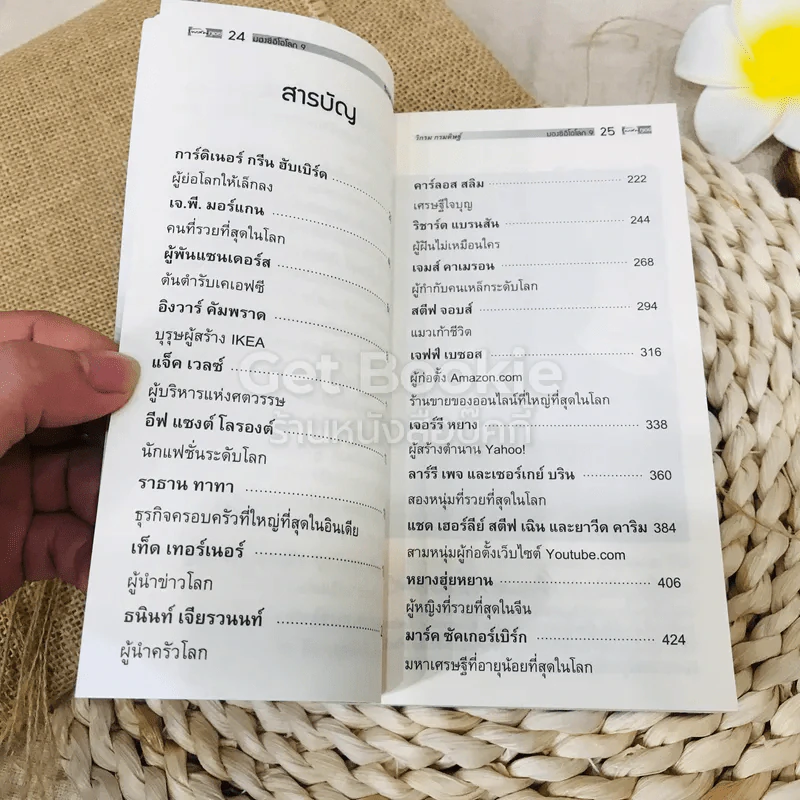 24 มองซีอีโอโลก 9
สารบัญ
การ์ดิเนอร์ กรีน ฮับเบิร์ด
ผู้ย่อโลกให้เล็กลง
เจ.พี. มอร์แกน
คนที่รวยที่สุดในโลก
ผู้พันแซนเดอร์ส
ต้นตำรับเคเอฟซี
อิงวาร์ คัมพราด
บุรุษผู้สร้าง IKEA
แจ็ค เวลซ์
ผู้บริหารแห่งศตวรรษ
อีฟ แซงต์ โลรองต์
นักแฟชั่นระดับโลก
ราธาน ทาทา
ธุรกิจครอบครัวที่ใหญ่ที่สุดในอินเดีย
เท็ด เทอร์เนอร์
ผู้นำข่าวโลก
ธนินท์ เจียรวนนท์
ผู้นำครัวโลก
วิกรม กรมดิษฐ์ มองซีอีโอโลก 9 25
คาร์ลอส สลิม 222
เศรษฐีใจบุญ
ริชาร์ด แบรนสัน 244
ผู้ฝันไม่เหมือนใคร
เจมส์ คาเมรอน 268
ผู้กำกับคนเหล็กระดับโลก
สตีฟ จอบส์ 294
แมวเก้าชีวิต
เจฟฟ์ เบซอส 316
ผู้ก่อตั้ง Amazon.com
ร้านขายของออนไลน์ที่ใหญ่ที่สุดในโลก
เจอร์รี หยาง 338
ผู้สร้างตำนาน Yahoo!
ลาร์รี เพจ และเซอร์เกย์ บริน 360
สองหนุ่มที่รวยที่สุดในโลก
แชด เฮอร์ลีย์ สตีฟ เฉิน และยาวีด คาริม 384
สามหนุ่มผู้ก่อตั้งเว็บไซต์ Youtube.com
หยางฮุ่ยหยาน 406
ผู้หญิงที่รวยที่สุดในจีน
มาร์ค ซัคเกอร์เบิร์ก 424
มหาเศรษฐีที่อายุน้อยที่สุดในโลก
Get Bookie
ร้านหนังสือบุ๊คกี้